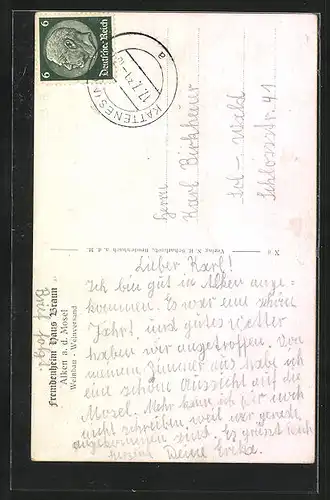 6 Deutsches Reich 6
KATTENES
17.7.
a
Herrn
Karl Birkheuer
Sol-Wald
Schlossstr. 41
Fremdenheim Haus Braun
Alken a. d. Mosel
Weinbau - Weinversand
Brief folgt.
Lieber Karl!
Ich bin gut in Alken ange-
kommen. Es war eine schöne
Fahrt und gutes Wetter
haben wir angetroffen. Von
meinem Zimmer aus habe ich
eine schöne Aussicht auf die
Mosel. Mehr kann ich Dir noch
nicht schreiben weil wir gerade
angekommen sind. Es grüsst Dich
herzlich Deine Erika.